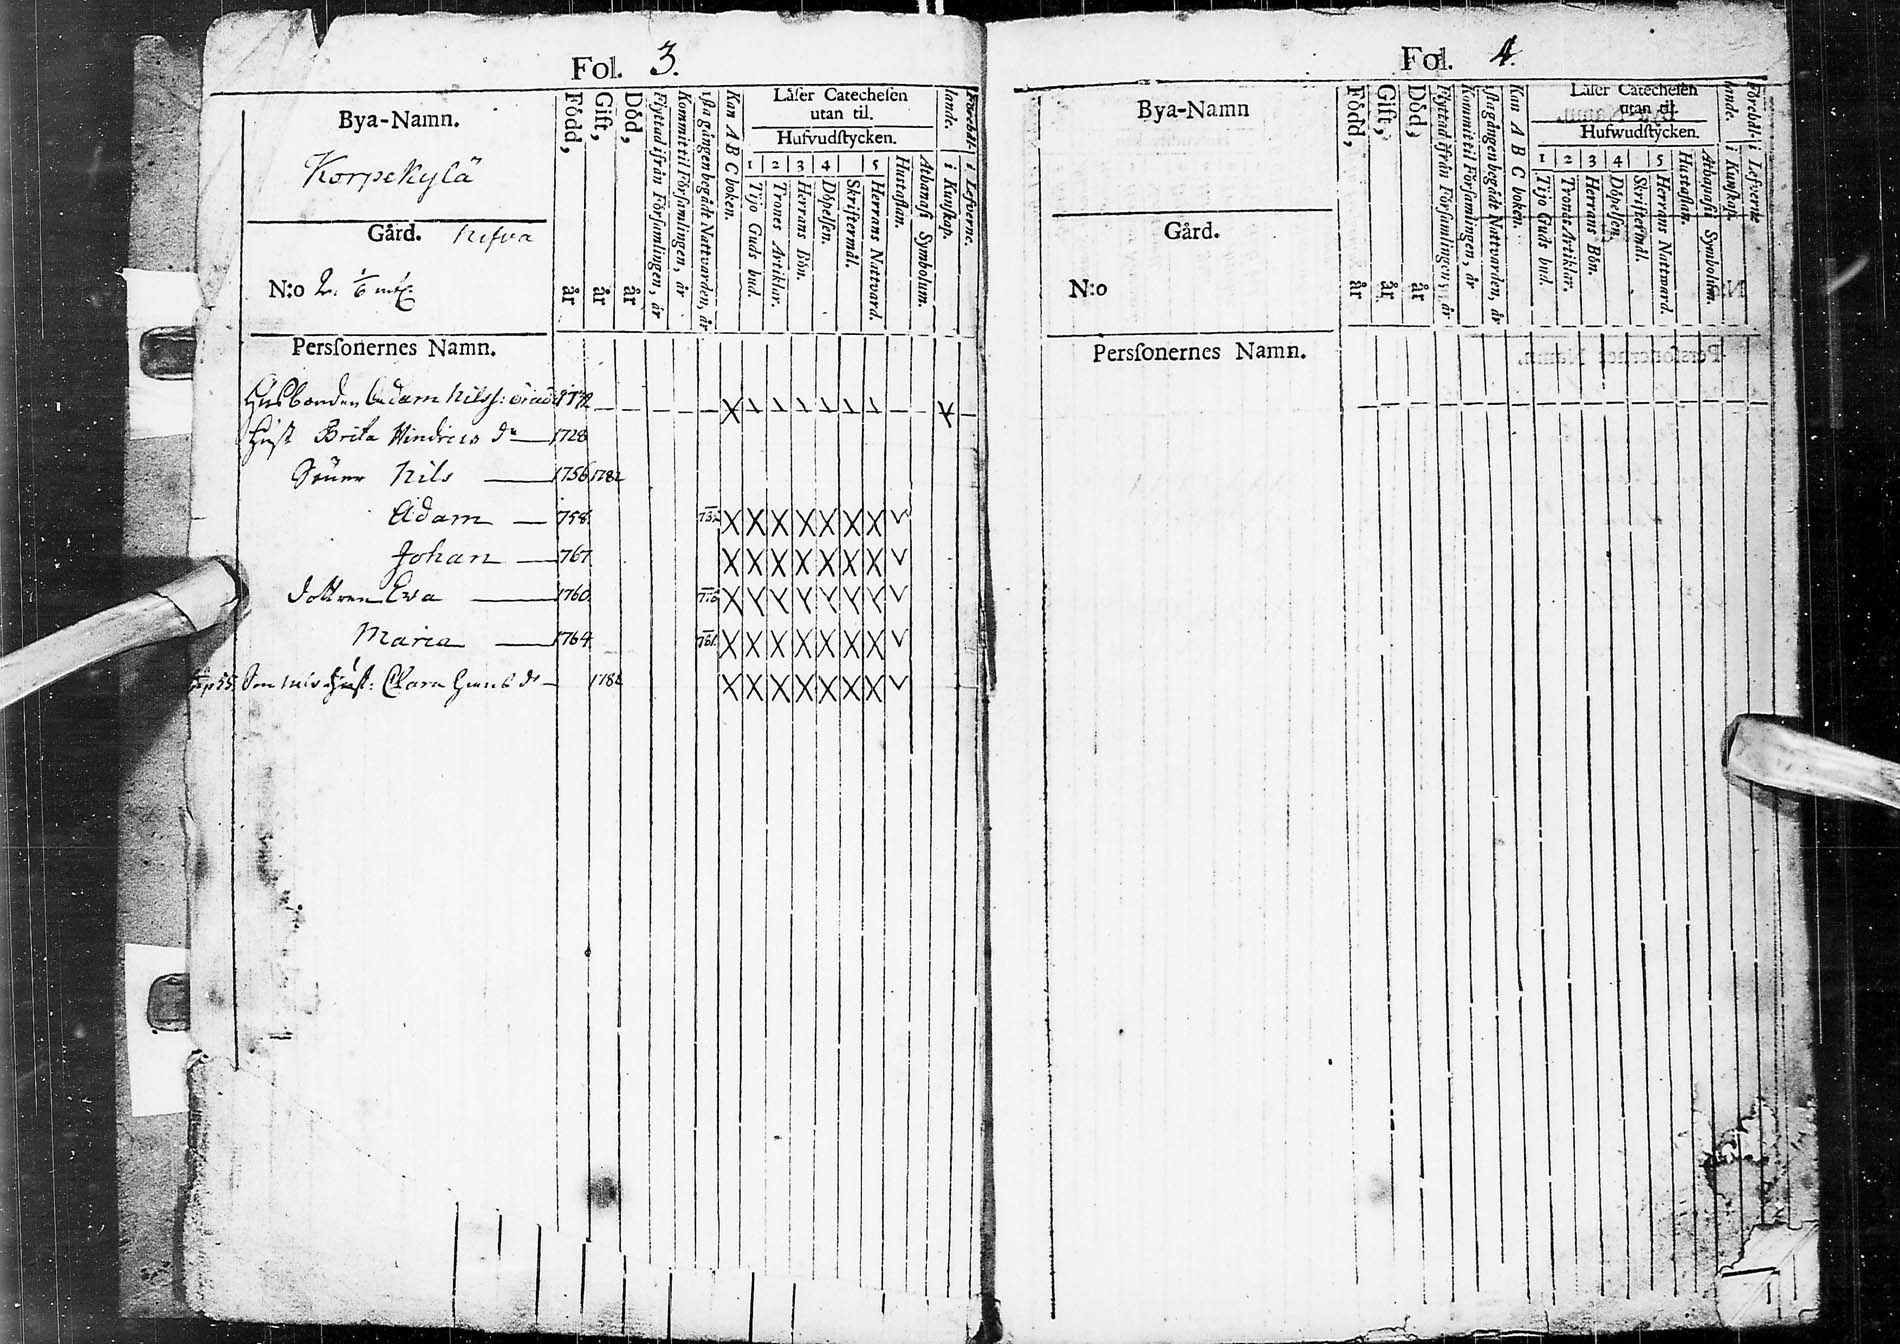 Fol. 3.
Bya-Namn.
Korpekylä
Gård.
N:o 2.
Född, år
Gift, år
Död, år
Flyttad ifrån Församlingen, år
Kommit til Församlingen, år
1sta gången begådt Nattvarden, år
Kan A B C boken.
Låser Catechesen
utan til.
Hufvudstycken.
1 2 3 4 5
Tijo Guds bud.
Trones Artiklar.
Herrans Bön.
Döpelsen.
Skriftermål.
Herrans Nattvard.
Hustaflan.
Athanasi Symbolum.
Förehål-
lande.
i Kunskap.
i Lefverne.
Perssonernes Namn.
Husbonden Adam Nilss:
Hust Brita Hindrics dr 1728
Söner Nils 1756 1782
Adam 758
Johan 767
Dottren Eva 1760
Maria 1764
Son Nils Hust: Clara
Fol. 4.
Bya-Namn
Gård.
N:o
Född, år
Gift, år
Död, år
Flyttad ifrån Församlingen, år
Kommit til Församlingen, år
1sta gången begådt Nattvarden, år
Kan A B C boken.
Låser Catechesen
utan til.
Hufwudstycken.
1 2 3 4 5
Tijo Guds bud.
Trones Artiklar.
Herrans Bön.
Döpelsen.
Skriftermål.
Herrans Nattward.
Hustaflan.
Athanasii Symbolum.
Förehål-
lande.
i Kunskap.
i Lefverne
Perssonernes Namn.